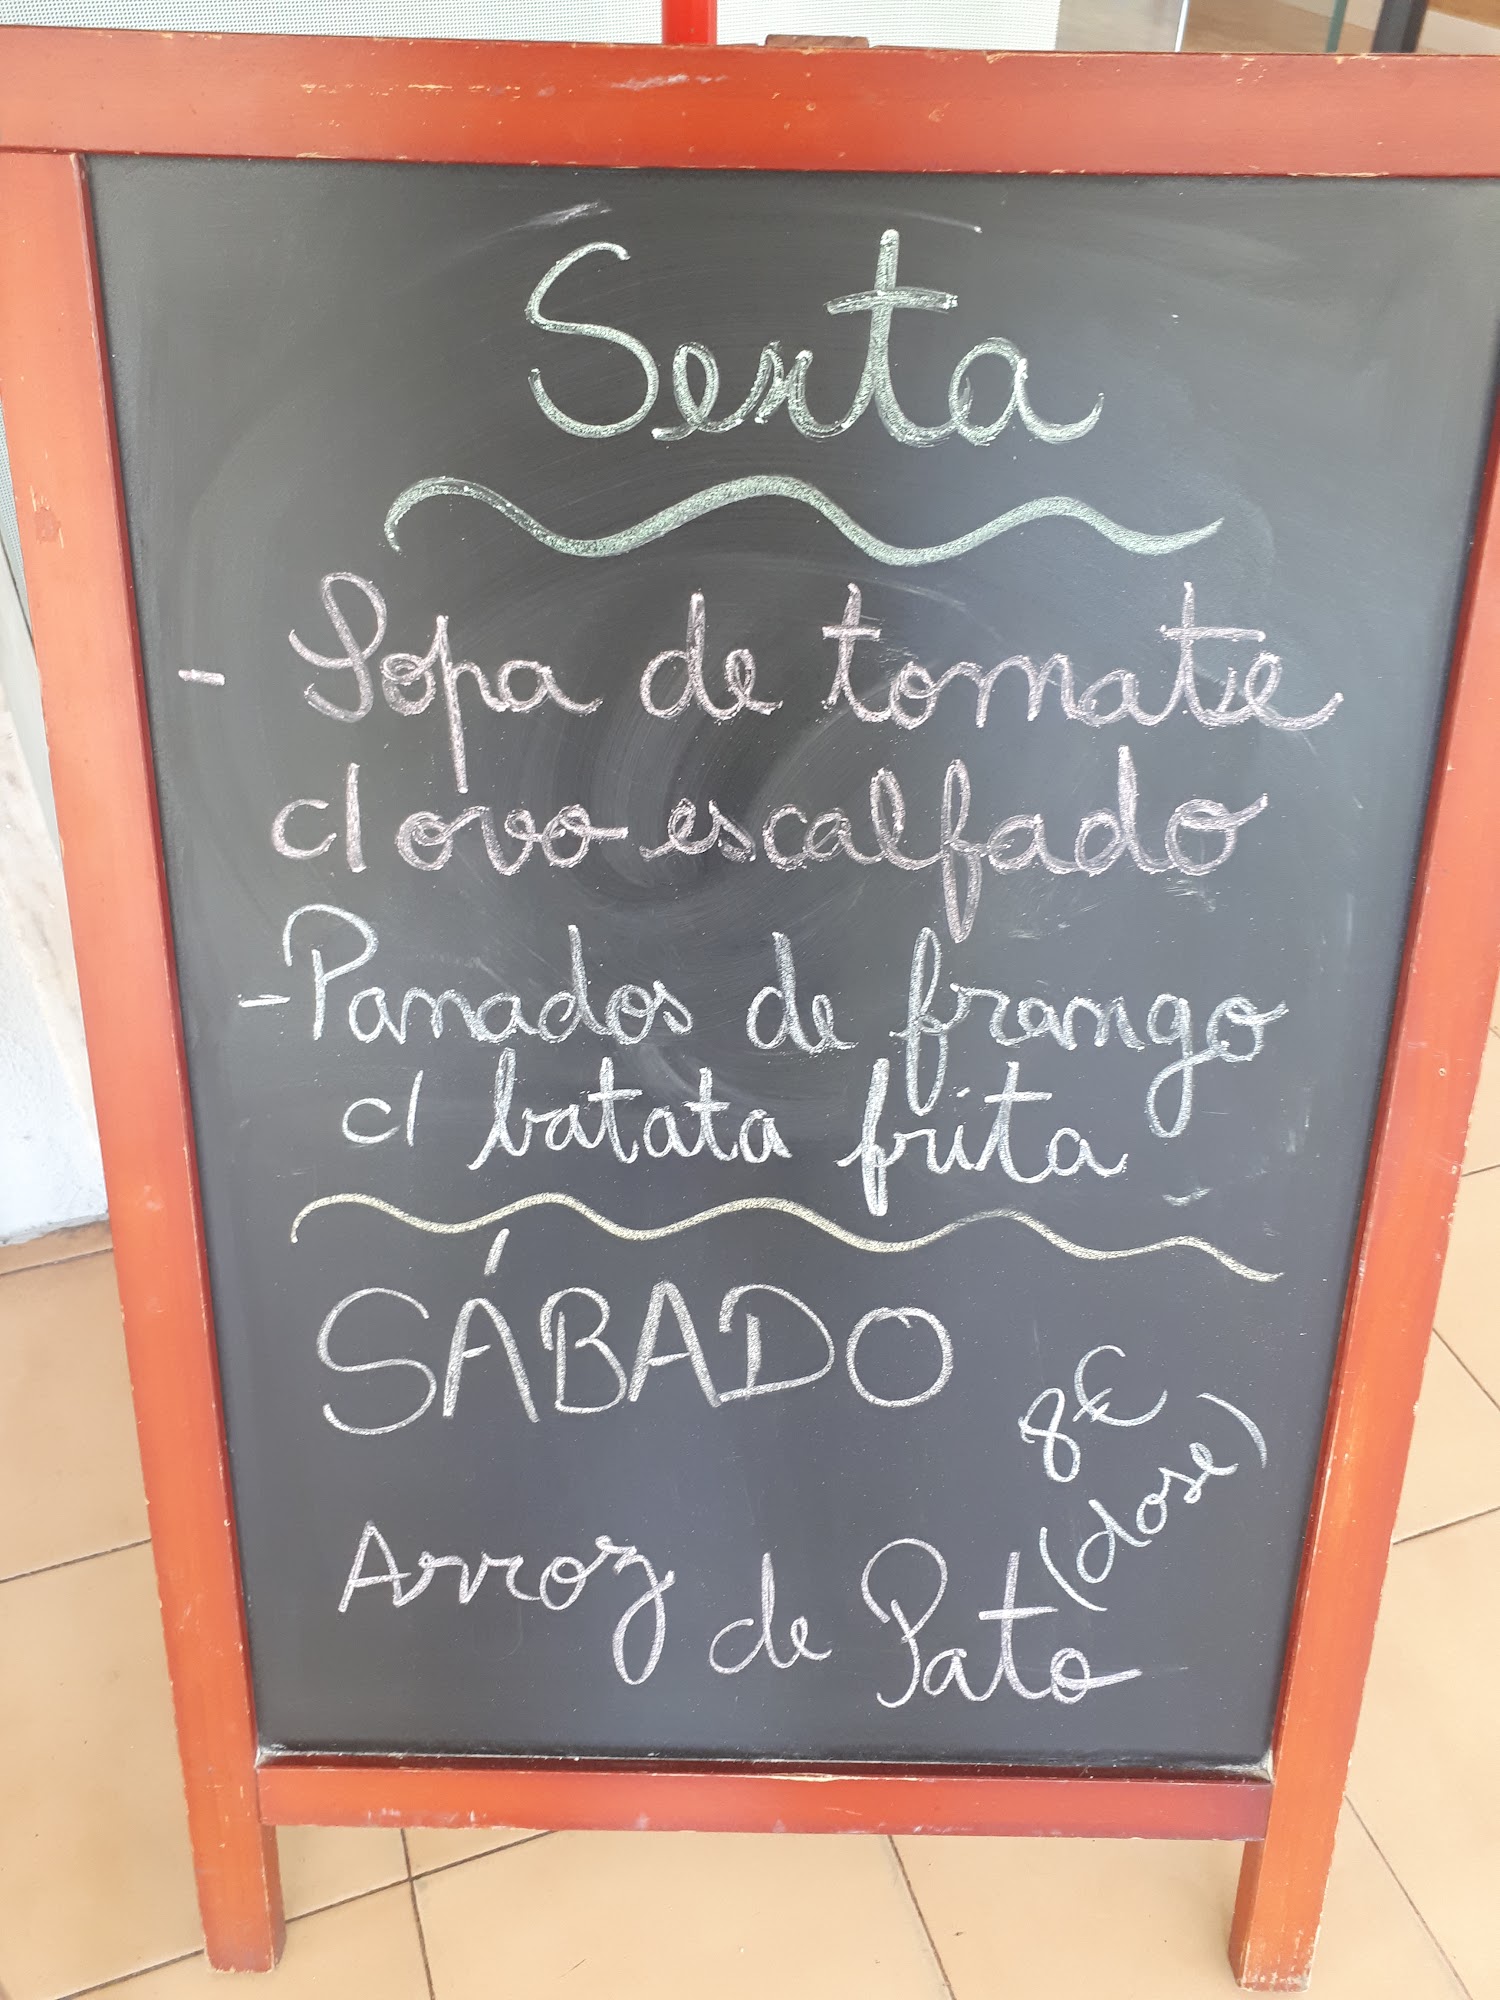 Sexta
- Sopa de tomate
c/ ovo escalfado
- Panados de frango
c/ batata frita
SÁBADO
8€
(dose)
Arroz de Pato